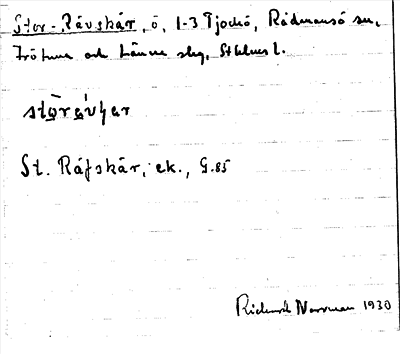 Stor-Rävskär, ö, 1-3 Tjockö, Rådmansö sn,
Frötuna och Länna slg, Sthlms l.
St. Räfskär, ek., G.85
Rickard Norrman 1930